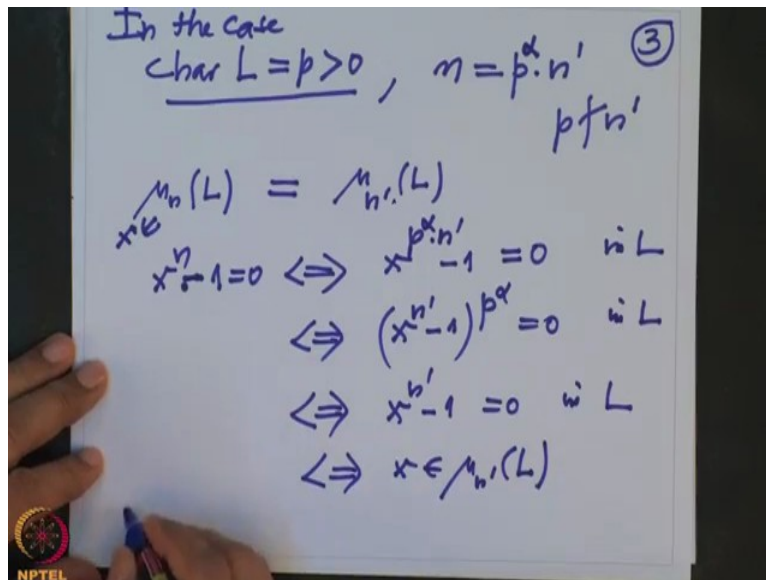 In the case
③
char L = p > 0, n = p^α · n'
p ∤ n'
μ_n(L) = μ_{n'}(L)
x ∈
x^n - 1 = 0 ⇔ x^{p^α · n'} - 1 = 0 in L
⇔ (x^{n'} - 1)^{p^α} = 0 in L
⇔ x^{n'} - 1 = 0 in L
⇔ x ∈ μ_{n'}(L)
NPTEL